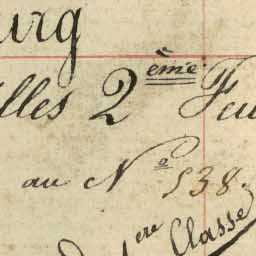 urg
lles 2ème Feu
au No 538.
ere Classe